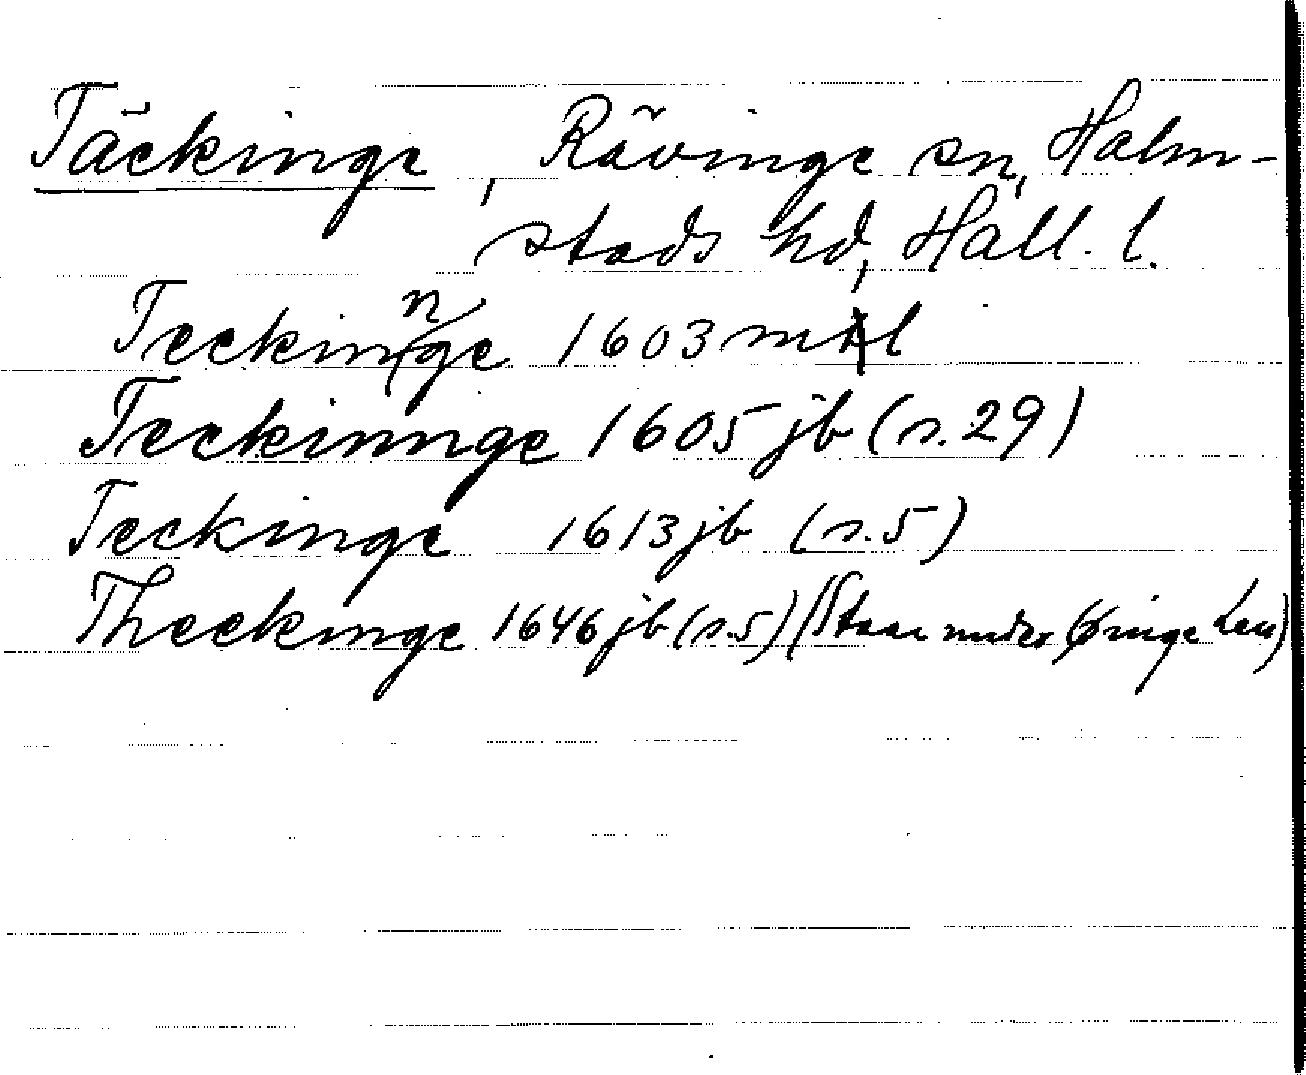 Täckinge, Rävinge sn, Halm-
stads hd, Hall. l.
Teckinnge 1603 mtl
Teckinnge 1605 jb (s. 29)
Teckinge 1613 jb (s. 5)
Theckinge 1646 jb (s. 5) (Staar under Øringe Len)